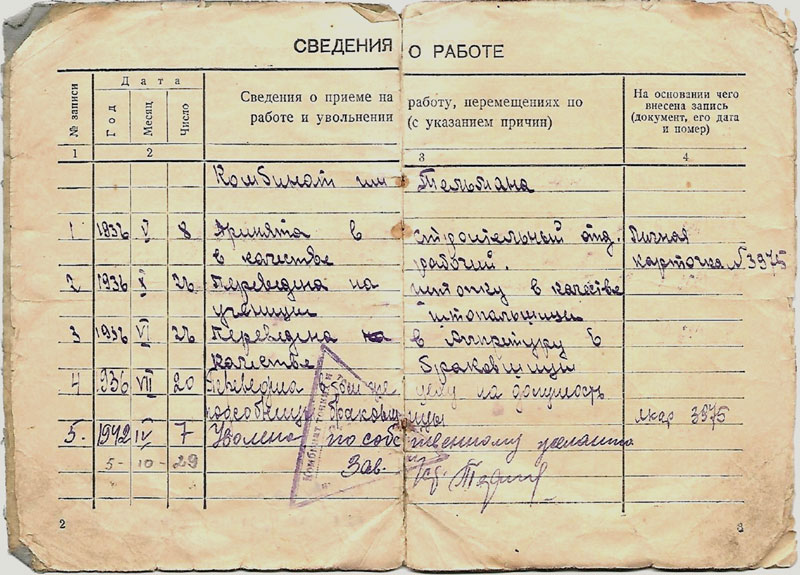 СВЕДЕНИЯ О РАБОТЕ
№ записи
Дата
Год
Месяц
Число
Сведения о приеме на работу, перемещениях по
работе и увольнении (с указанием причин)
На основании чего
внесена запись
(документ, его дата
и номер)
1 2 3 4
Комбинат им Тельмана
1 1936 V 8 Принята в строительный отд. Личная
в качестве рабочий карточка №3975
2 1936 X 26 Переведена на штопку в качестве
ученицы штопальщицы
3 1936 VI 26 Переведена на в Аппретуру в
качестве браковщицы
4 936 VII 20 Переведена в цеху на должность
подсобницы браковщицы лкар 3975
5. 1942 IV 7 Уволена по собственному желанию
5 - 10 - 29 Зав.
Комбинат
2
3